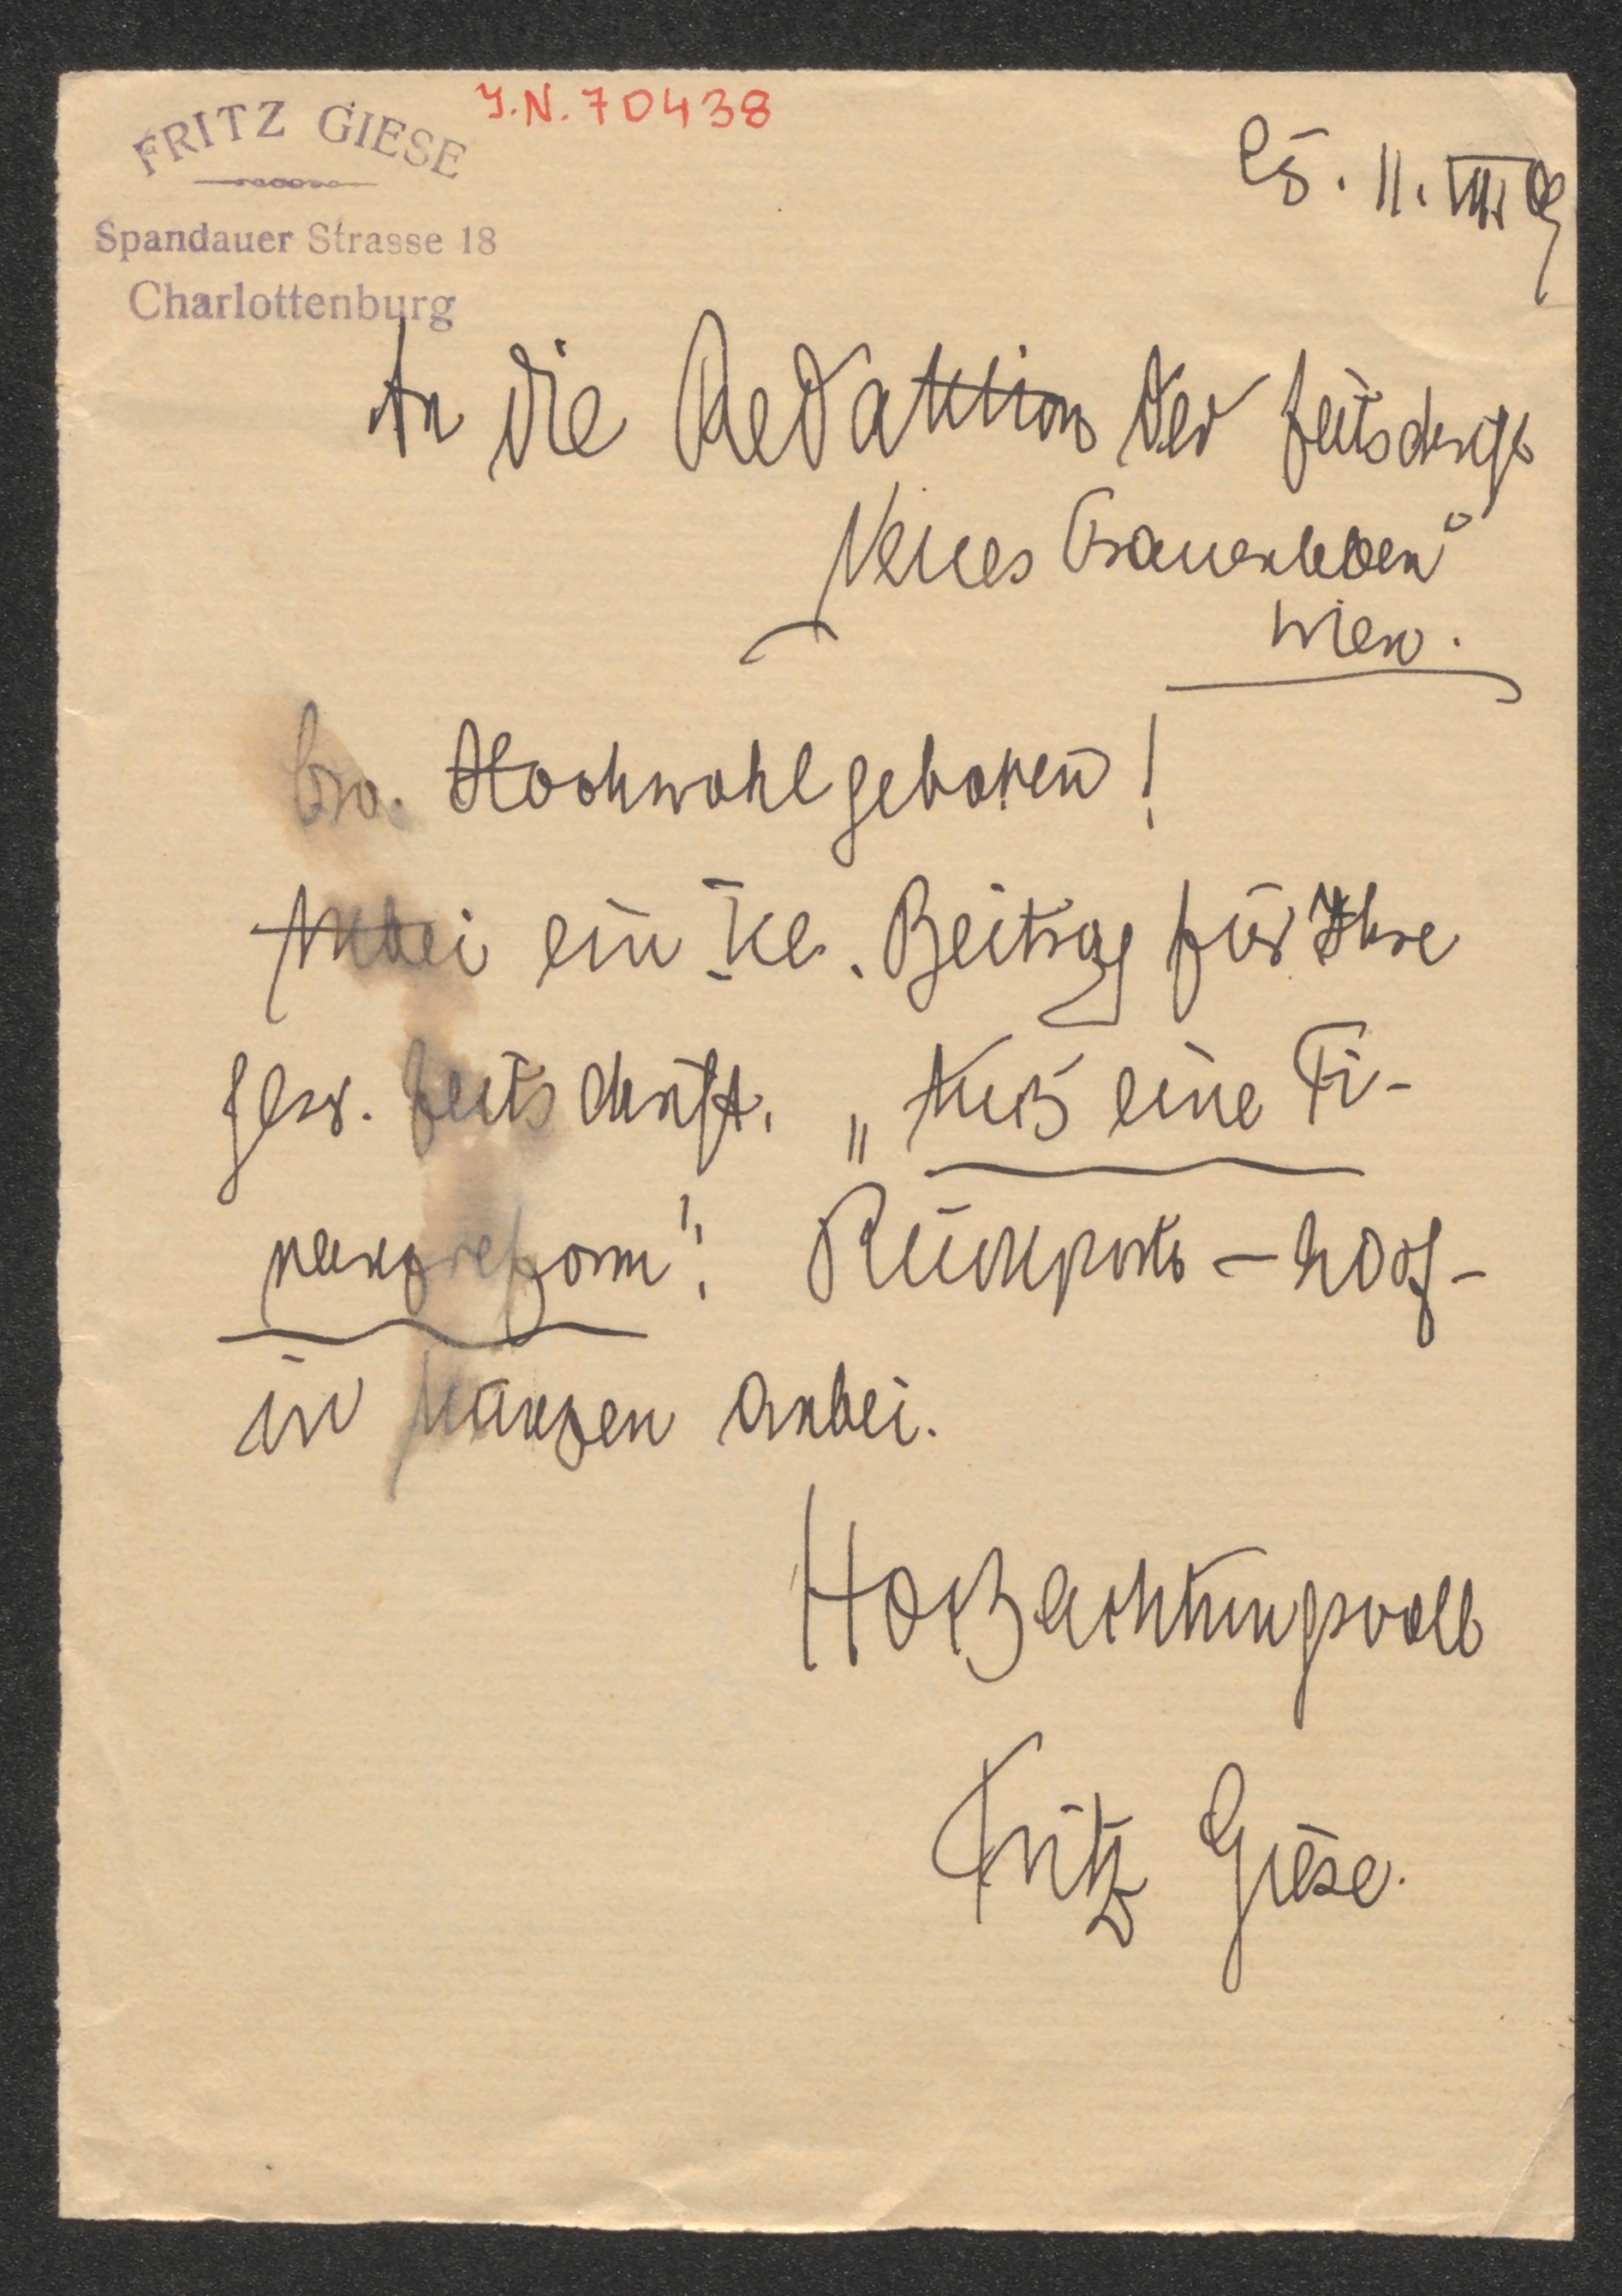 FRITZ GIESE
J.N. 70438
Spandauer Strasse 18
Charlottenburg
11. VII. 09
An die Redaktion der Zeitschrift
Neues Frauenleben"
Wien.
Ew. Hochwohlgeboren!
Anbei ein kl. Beitrag für Ihre
gesch. Zeitschrift. „Auch eine Fi-
nanzreform": Rückporto – 20 Pf –
in Marken anbei.
Hochachtungsvoll
Fritz Giese.